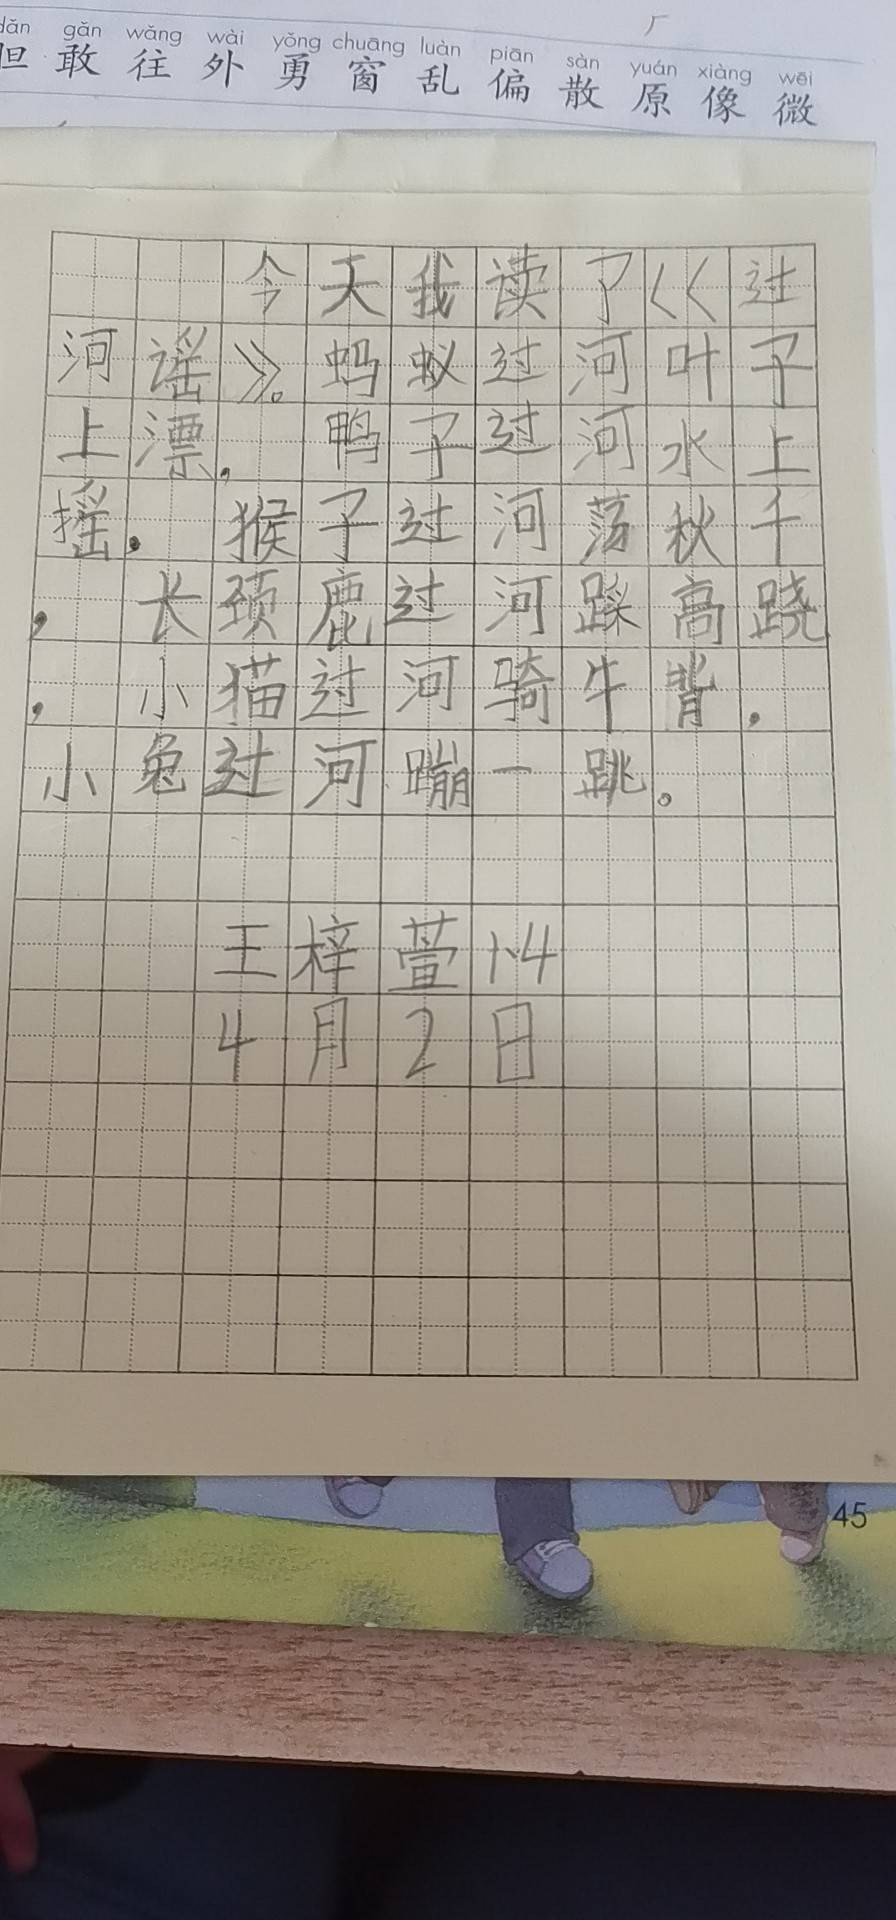 dǎn gǎn wǎng wài yǒng chuāng luàn piān sàn yuán xiàng wēi
胆 敢 往 外 勇 窗 乱 偏 散 原 像 微
今天我读了《过
河谣》。蚂蚁过河叶子
上漂，鸭子过河水上
摇，猴子过河荡秋千
，长颈鹿过河踩高跷
，小猫过河骑牛背，
小兔过河蹦一跳。
王梓萱1.4
4月2日
45